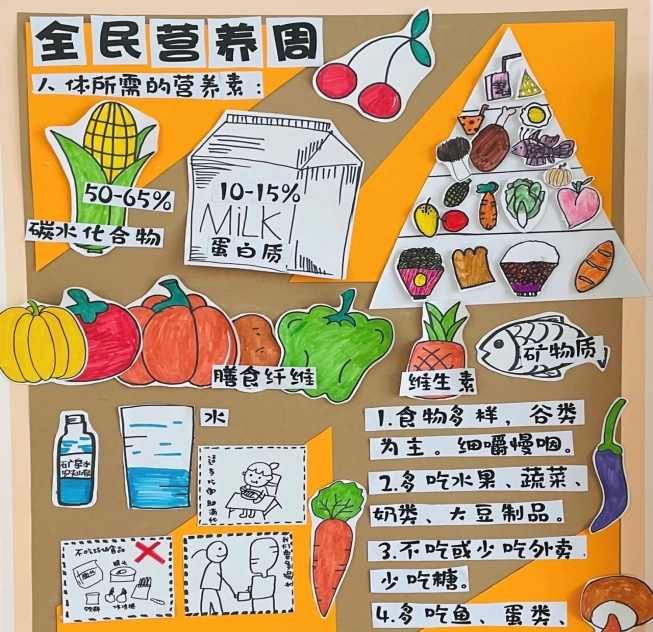 全民营养周
人体所需的营养素：
50-65%
碳水化合物
10-15%
MiLK
蛋白质
膳食纤维
维生素
矿物质
水
矿泉水
1.食物多样，谷类
为主。细嚼慢咽。
2.多吃水果、蔬菜、
奶类、大豆制品。
3.不吃或少吃外卖
少吃糖。
4.多吃鱼、蛋类、
不吃垃圾食品